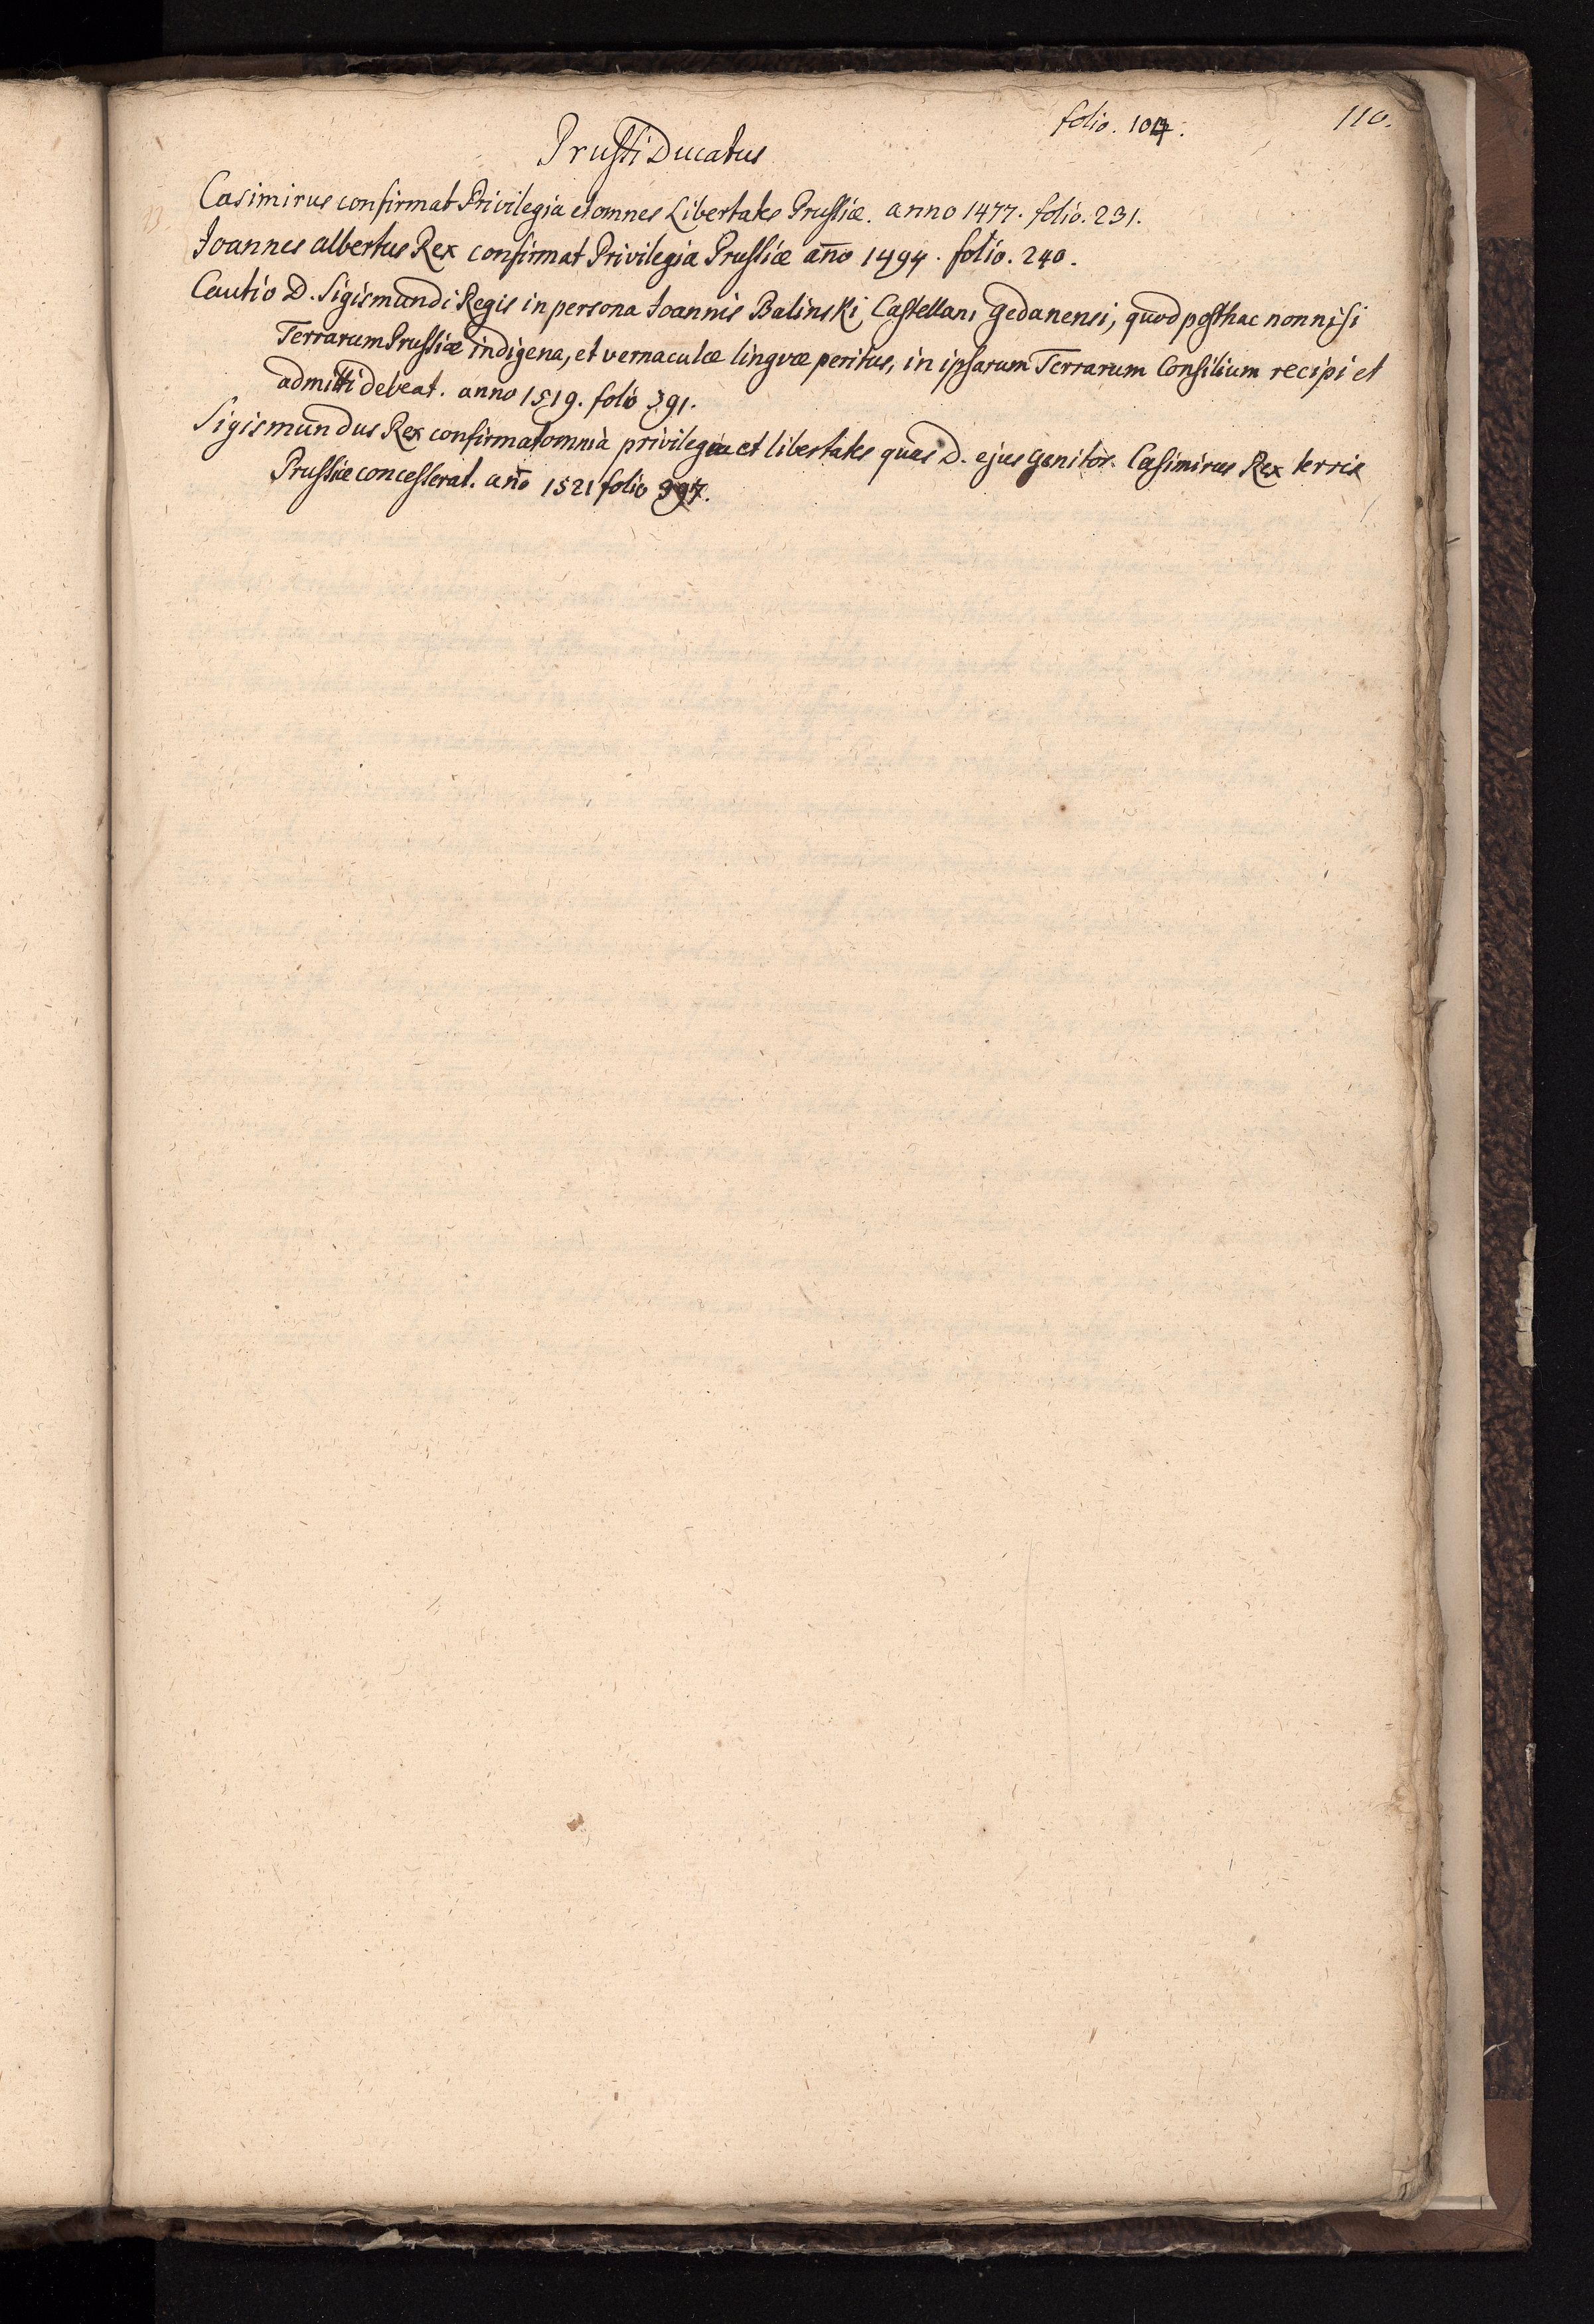 folio. 104. 110.
Prussi Ducatus
Casimirus confirmat Privilegia et omnes Libertates Prussiæ. anno 1477. folio. 231.
Joannes albertus Rex confirmat Privilegia Prussiæ año 1494. folio. 240.
Cautio D. Sigismundi Regis in persona Joannis Balinski Castellani Gedanensi, quod posthac nonnisi
Terrarum Prussiæ indigena, et vernaculæ lingvæ peritus, in ipsarum Terrarum Consilium recipi et
admitti debeat. anno 1519. folio 391.
Sigismundus Rex confirmat omnia privilegia et libertates quas D. ejus genitor Casimirus Rex terris
Prussiæ concesserat. año 1521 folio 397.